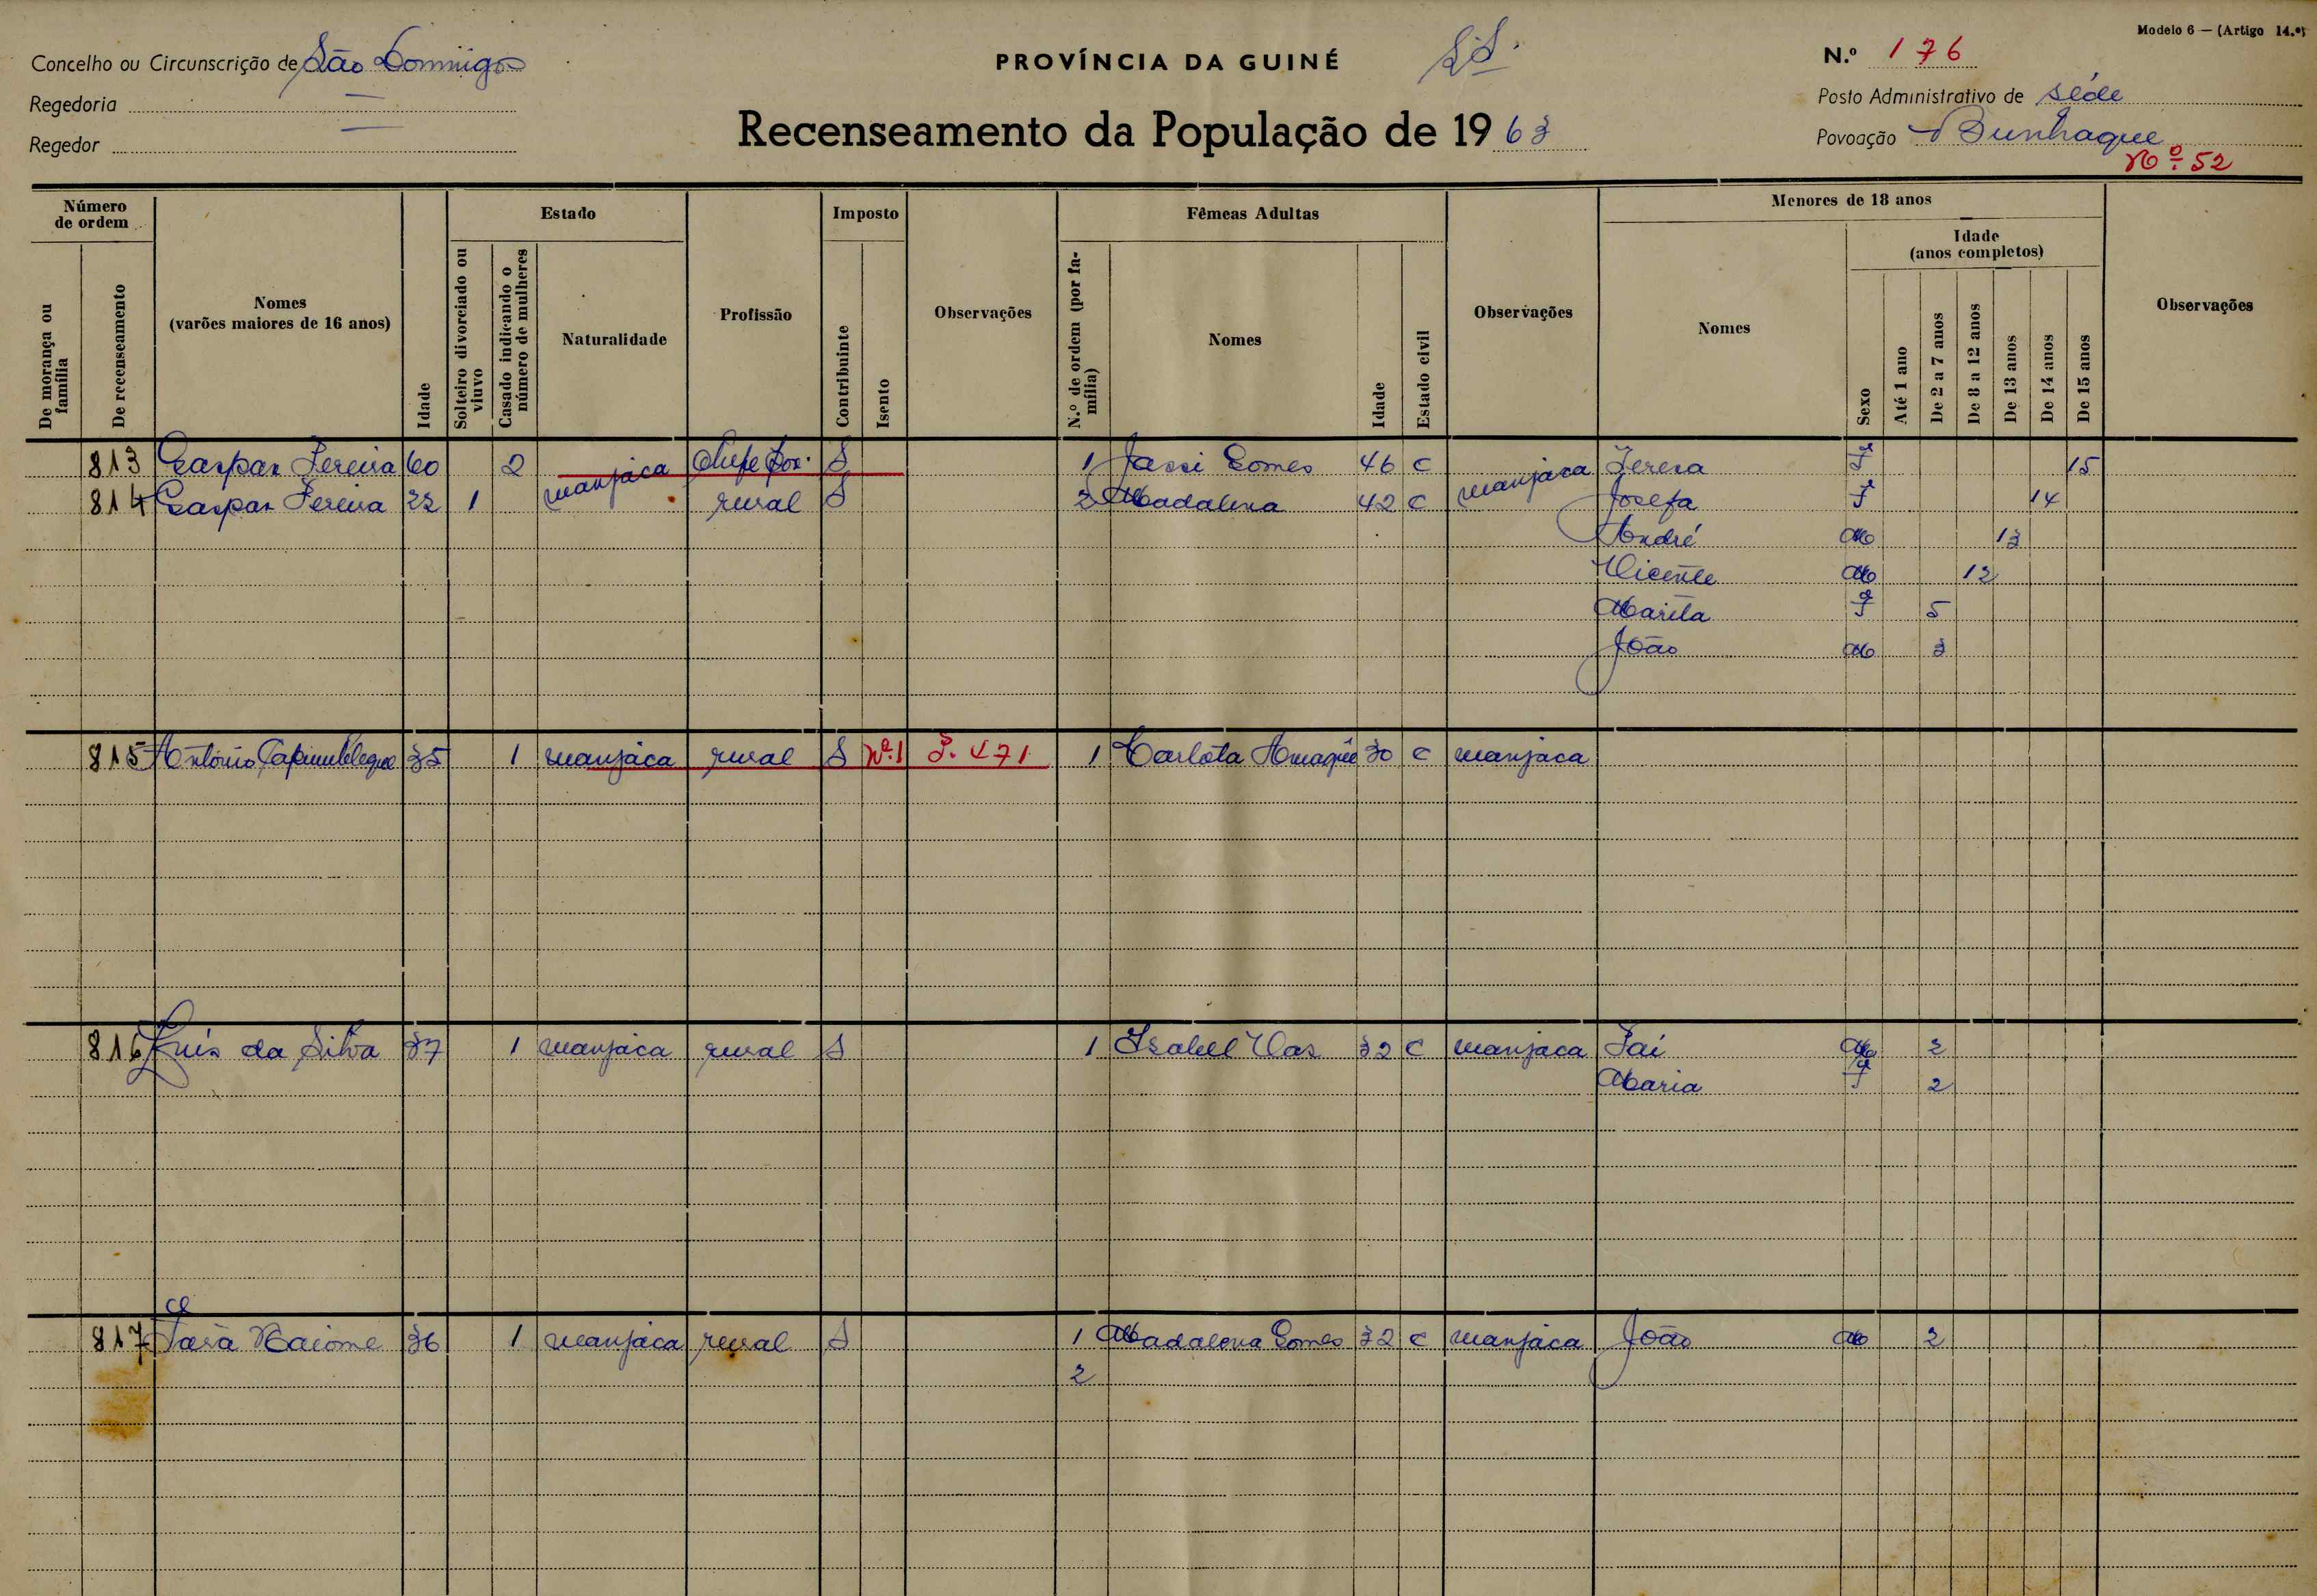 Modelo 6 — (Artigo 14.º)
Concelho ou Circunscrição de São Domingos
PROVÍNCIA DA GUINÉ
N.º 176
Regedoria —
Posto Administrativo de Séde
Regedor —
Recenseamento da População de 1963
Povoação Bunhaque
Nº 52
Número de ordem
De morança ou família
De recenseamento
Nomes
(varões maiores de 16 anos)
Idade
Estado
Solteiro divorciado ou viuvo
Casado indicando o número de mulheres
Naturalidade
Profissão
Imposto
Contribuinte
Isento
Observações
Fêmeas Adultas
N.º de ordem (por família)
Nomes
Idade
Estado civil
Observações
Menores de 18 anos
Nomes
Sexo
Idade
(anos completos)
Até 1 ano
De 2 a 7 anos
De 8 a 12 anos
De 13 anos
De 14 anos
De 15 anos
Observações
813 Gaspar Pereira 60 2 manjaca Chefe Pov. S 1 Jassi Gomes 46 C manjaca Teresa F 15
814 Gaspar Pereira 22 1 rural S 2 Madalena 42 C Josefa F 14
André M 13
Vicente M 12
Marita F 5
João M 3
815 António 35 1 manjaca rural S Nº1 1 Carlota 30 C manjaca
816 Luis da Silva 37 1 manjaca rural S 1 Isabel Vas 32 C manjaca Pai M 3
Maria F 2
817 Naiome 36 1 manjaca rural S 1 Madalena Gomes 32 C manjaca João M 2
2